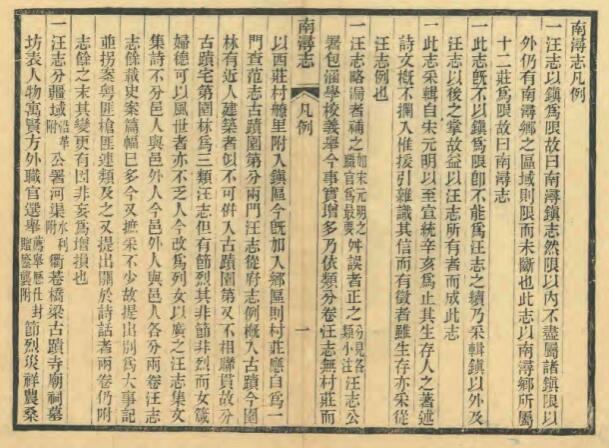 南潯志凡例
一汪志以鎮爲限故曰南潯鎮志然限以內不盡屬諸鎮限以
外仍有南潯鄉之區域則限而未斷也此志以南潯鄉所屬
十二莊爲限故曰南潯志
一此志旣不以鎮爲限卽不能爲汪志之續乃采輯鎮以外及
汪志以後之掌故益以汪志所有者而成此志
一此志采輯自宋元明以至宣統辛亥爲止其生存人之著述
詩文槪不攔入惟援引雜識其信而有徵者雖生存亦采從
汪志例也
一汪志略漏者補之如宋元明之職官爲最要舛誤者正之分見各類小注汪志公
署包涵學校義舉今事實增多乃依類分卷汪志無村莊而
南潯志
凡例
一
以西莊村里附入鎮區今旣加入鄉區則村莊應自爲一
門查范志古蹟園第分兩門汪志從府志例槪入古蹟今園
林有近人建築者似不可併入古蹟園第又不相聯貫故分
古蹟宅第園林爲三類汪志但有節烈其非節非烈而女箴
婦德可以風世者亦不乏人今改爲列女以廣之汪志集文
集詩不分邑人與邑外人今邑外人與邑人各分兩卷汪志
志餘裁史案篇幅巳多今又摭采不少故提出別爲大事記
並案粵匪槍匪連類及之又提出關於詩話者兩卷仍附
志餘之末其變更有因非妄爲增損也
一汪志分疆域沿革附公署河渠水利附衢巷橋梁古蹟寺廟祠墓
坊表人物寓賢方外職官選舉薦舉仕封贈廕襲附節烈災祥農桑